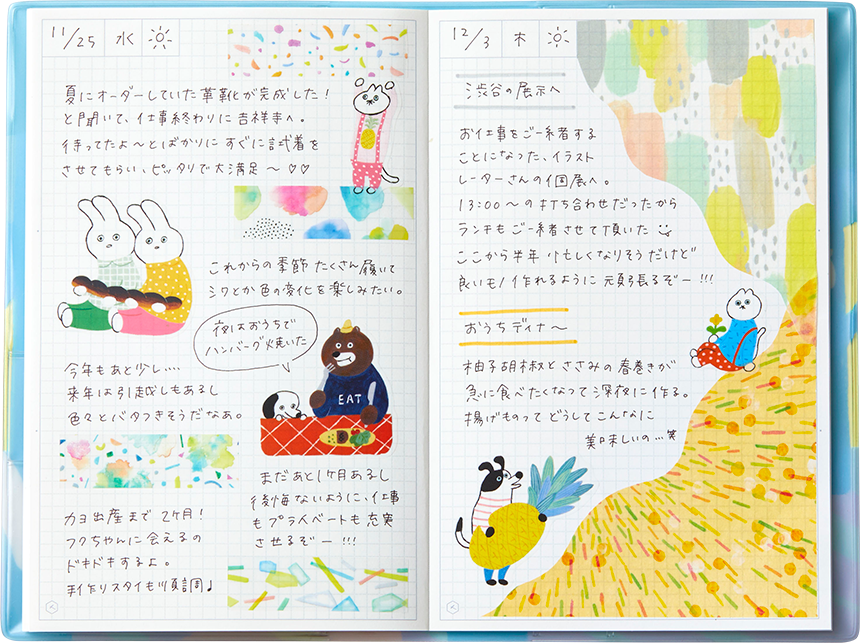 11/25 水
夏にオーダーしていた革靴が完成した！
と聞いて、仕事終わりに吉祥寺へ。
待ってたよ〜とばかりに すぐに試着を
させてもらい、ピッタリで大満足〜♡♡
これからの季節 たくさん履いて
シワとか色の変化を楽しみたい。
夜はおうちで
ハンバーグ焼いた
EAT
今年もあと少し….
来年は引越しもあるし
色々とバタつきそうだなぁ。
まだあと1ヶ月あるし
後悔ないように、仕事
もプライベートも充実
させるぞー!!!
カヨ出産まで 2ヶ月！
フクちゃんに会えるの
ドキドキするよ。
手作りスタイも順調♩
12/3 木
渋谷の展示へ
お仕事をご一緒する
ことになった、イラスト
レーターさんの個展へ。
13:00〜の打ち合わせだったから
ランチもご一緒させて頂いた
ここから半年 忙しくなりそうだけど
良いもの作れるように 頑張るぞー!!!
おうちディナ〜
柚子胡椒とささみの春巻きが
急に食べたくなって深夜に作る。
揚げものって どうしてこんなに
美味しいの…笑